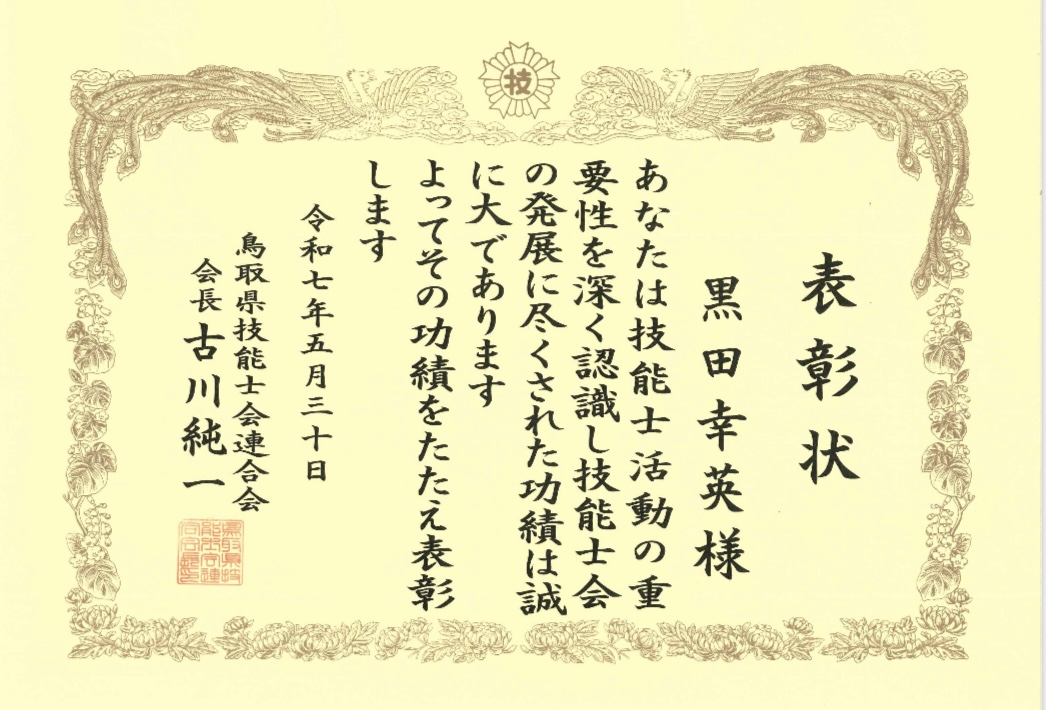 技
表彰状
黒田幸英様
あなたは技能士活動の重
要性を深く認識し技能士会
の発展に尽くされた功績は誠
に大であります
よってその功績をたたえ表彰
します
令和七年五月三十日
鳥取県技能士会連合会
会長古川純一